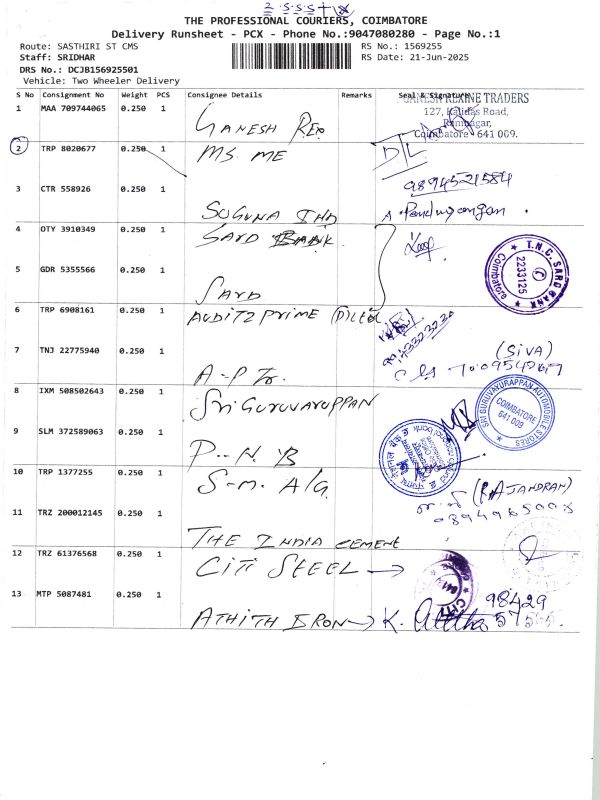 THE PROFESSIONAL COURIERS, COIMBATORE
Delivery Runsheet - PCX - Phone No.:9047080280 - Page No.:1
Route: SASTHIRI ST CMS
RS No.: 1569255
Staff: SRIDHAR
RS Date: 21-Jun-2025
DRS No.: DCJB156925501
Vehicle: Two Wheeler Delivery
S No Consignment No Weight PCS Consignee Details Remarks Seal & Signature
1 MAA 709744065 0.250 1 GANESH REX
GANESH REXINE TRADERS
127, Kalidas Road,
Ramnagar,
Coimbatore - 641 009.
2 TRP 8020677 0.250 1 MS. ME
3 CTR 558926 0.250 1 SUGUNA IND
9894521584
A. Pandurangan.
4 OTY 3910349 0.250 1 SARD BANK
5 GDR 5355566 0.250 1 SARD
T.N.C. SARD BANK
2233125
Coimbatore
6 TRP 6908161 0.250 1 AUDITZ PRIME (P) Ltd
7 TNJ 22775940 0.250 1 A-P Tr.
(SIVA)
8 IXM 508502643 0.250 1 SRI GURUVAYURPPAN
SRI GURUVAYURAPPAN AUTOMOBILE STORES
COIMBATORE
641 009
9 SLM 372589063 0.250 1 P.. N. B
10 TRP 1377255 0.250 1 S-M. A/G.
(RAJANDRAN)
11 TRZ 200012145 0.250 1 THE INDIA CEMENT
12 TRZ 61376568 0.250 1 CITI STEEL →
13 MTP 5087481 0.250 1 ATHITH IRON → K.
98429